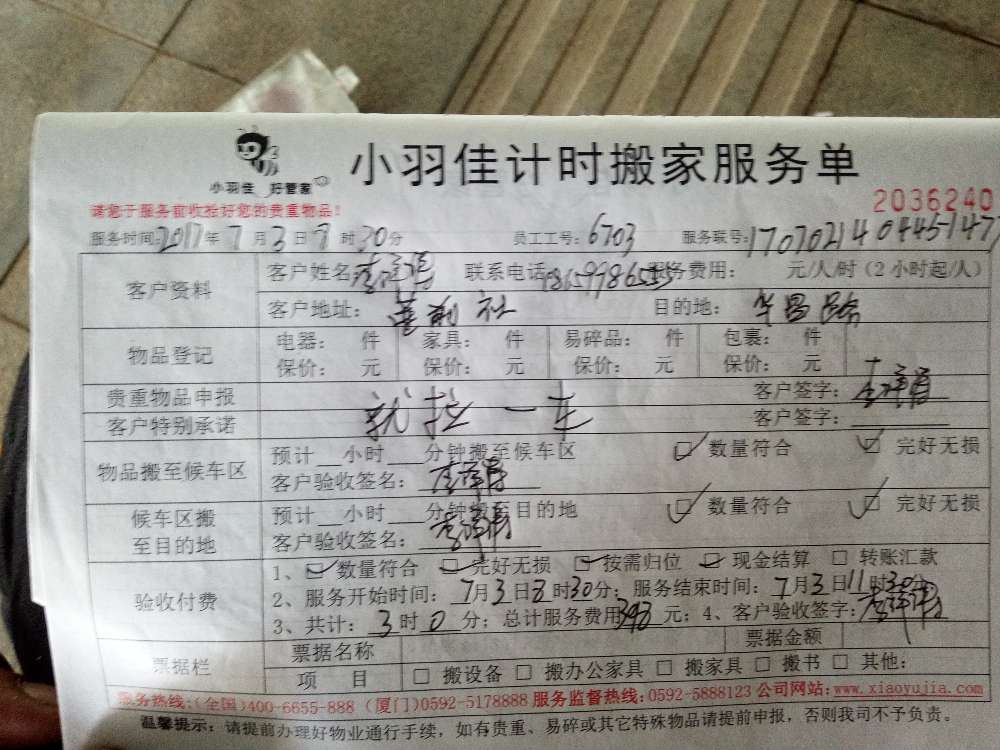 小羽佳 好管家
小羽佳计时搬家服务单
请您于服务前收捡好您的贵重物品！
2036240
服务时间:2017年7月3日 时30分 员工工号：6703 服务联号:
客户资料 客户姓名 联系电话 服务费用： 元/人/时（2小时起/人）
客户地址： 社 目的地：华昌路
物品登记 电器： 件 家具： 件 易碎品： 件 包裹： 件
保价： 元 保价： 元 保价： 元 保价： 元
贵重物品申报 客户签字：
就拉一车
客户特别承诺 客户签字：
物品搬至候车区 预计__小时___分钟搬至候车区 ☑ 数量符合 ☑ 完好无损
客户验收签名：
候车区搬至目的地 预计__小时___分钟搬至目的地 ☑ 数量符合 ☑ 完好无损
客户验收签名：
验收付费 1、☑ 数量符合 ☑ 完好无损 ☑ 按需归位 ☑ 现金结算 □ 转账汇款
2、服务开始时间：7月3日8时30分；服务结束时间：7月3日11时30分
3、共计：3时0分；总计服务费用 元；4、客户验收签字：
票据栏 票据名称 票据金额
项 目 □ 搬设备 □ 搬办公家具 □ 搬家具 □ 搬书 □ 其他：
服务热线：(全国)400-6655-888 (厦门)0592-5178888 服务监督热线：0592-5888123 公司网站：www.xiaoyujia.com
温馨提示：请提前办理好物业通行手续，如有贵重、易碎或其它特殊物品请提前申报，否则我司不予负责。